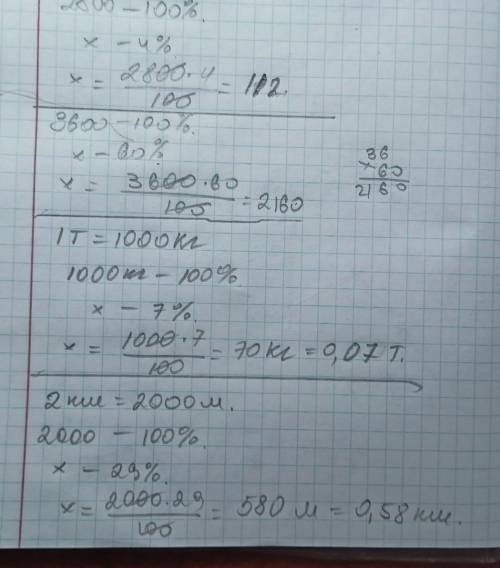 2800 – 100%.
x – 4%
x = 2800·4 / 100 = 112.
3600 – 100%.
x – 60%
x = 3600·60 / 100 = 2160
36
×60
2160
1т = 1000кг
1000кг – 100%
x – 7%.
x = 1000·7 / 100 = 70кг = 0,07 т.
2км = 2000м.
2000 – 100%.
x – 29%.
x = 2000·29 / 100 = 580 м = 0,58км.